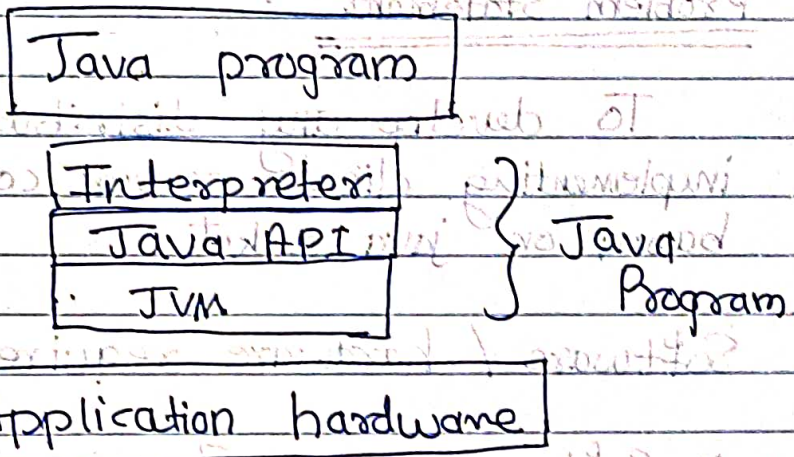 Java program
Interpreter
Java API
JVM
Java
Program
pplication hardware